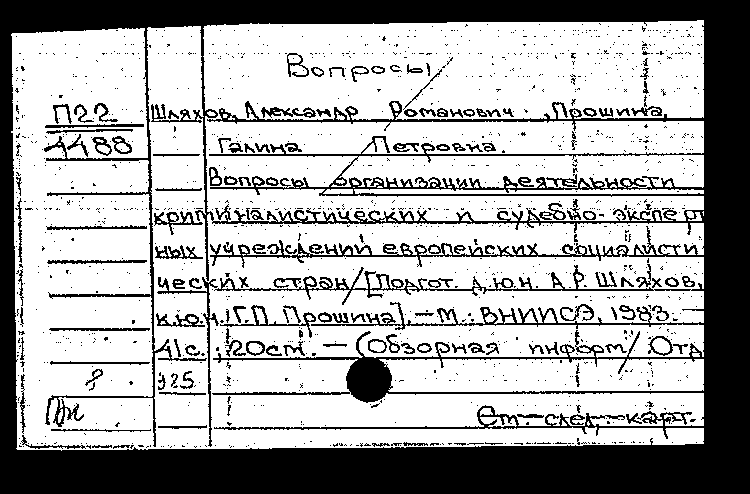 Вопросы
П22 Шляхов, Александр Романович, Прошина,
4488 Галина Петровна.
Вопросы организации деятельности
криминалистических и судебно-эксперт
ных учреждений европейских социалисти
ческих стран/[Подгот. д.ю.н. А.Р. Шляхов,
к.ю.н. Г.П. Прошина]. – М.: ВНИИСЭ, 1983. –
41с.; 20см. – (Обзорная информ/ Отд
8 325
См. след. карт.